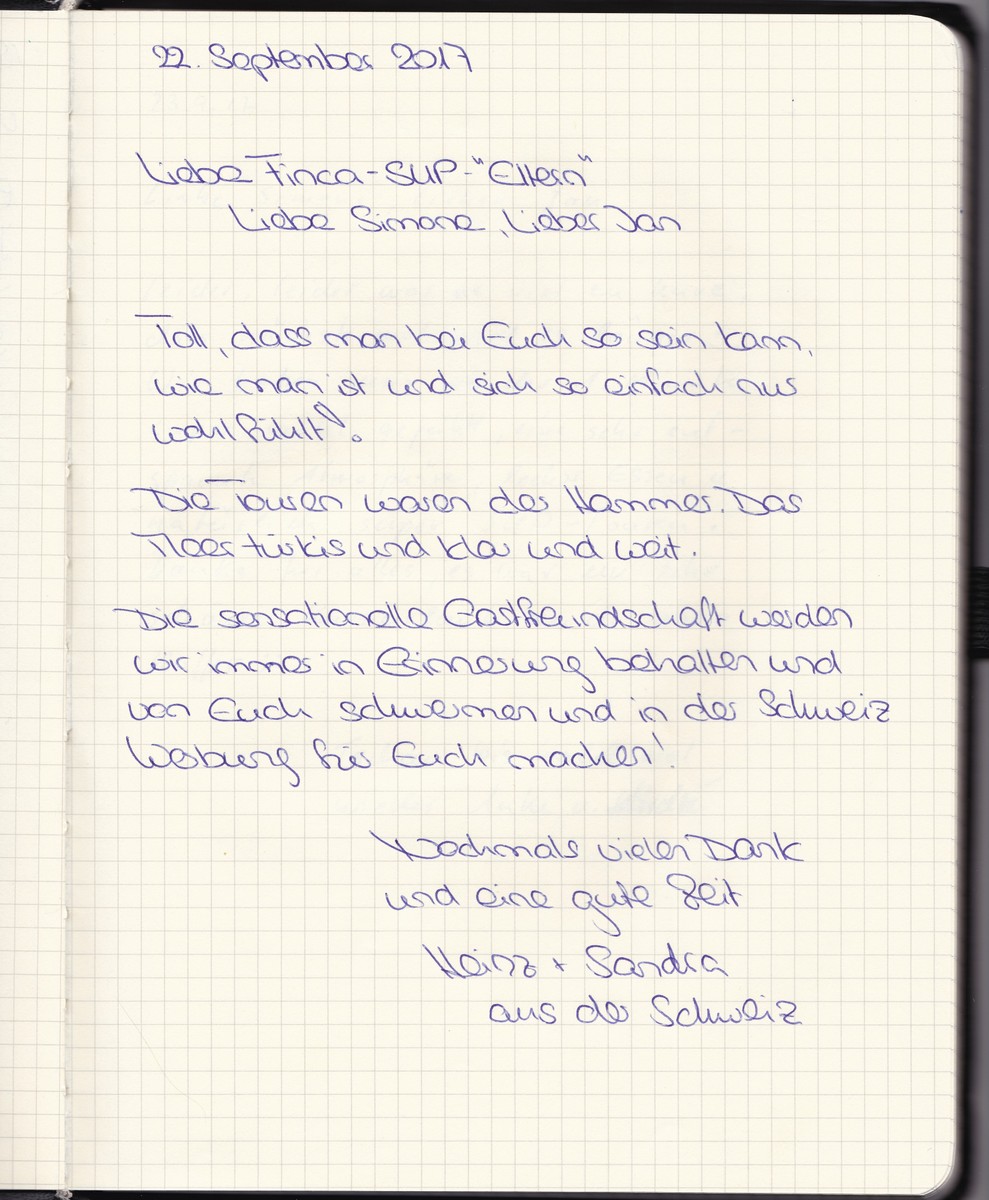 22. September 2017
Liebe Finca-SUP-"Eltern"
Liebe Simone, Lieber Jan
Toll, dass man bei Euch so sein kann,
wie man ist und sich so einfach nur
wohl fühlt!
Die Touren waren der Hammer. Das
Meer türkis und klar und weit.
Die sensationelle Gastfreundschaft werden
wir immer in Erinnerung behalten und
von Euch schwärmen und in der Schweiz
Werbung für Euch machen!
Nochmals vielen Dank
und eine gute Zeit
Heinz + Sandra
aus der Schweiz